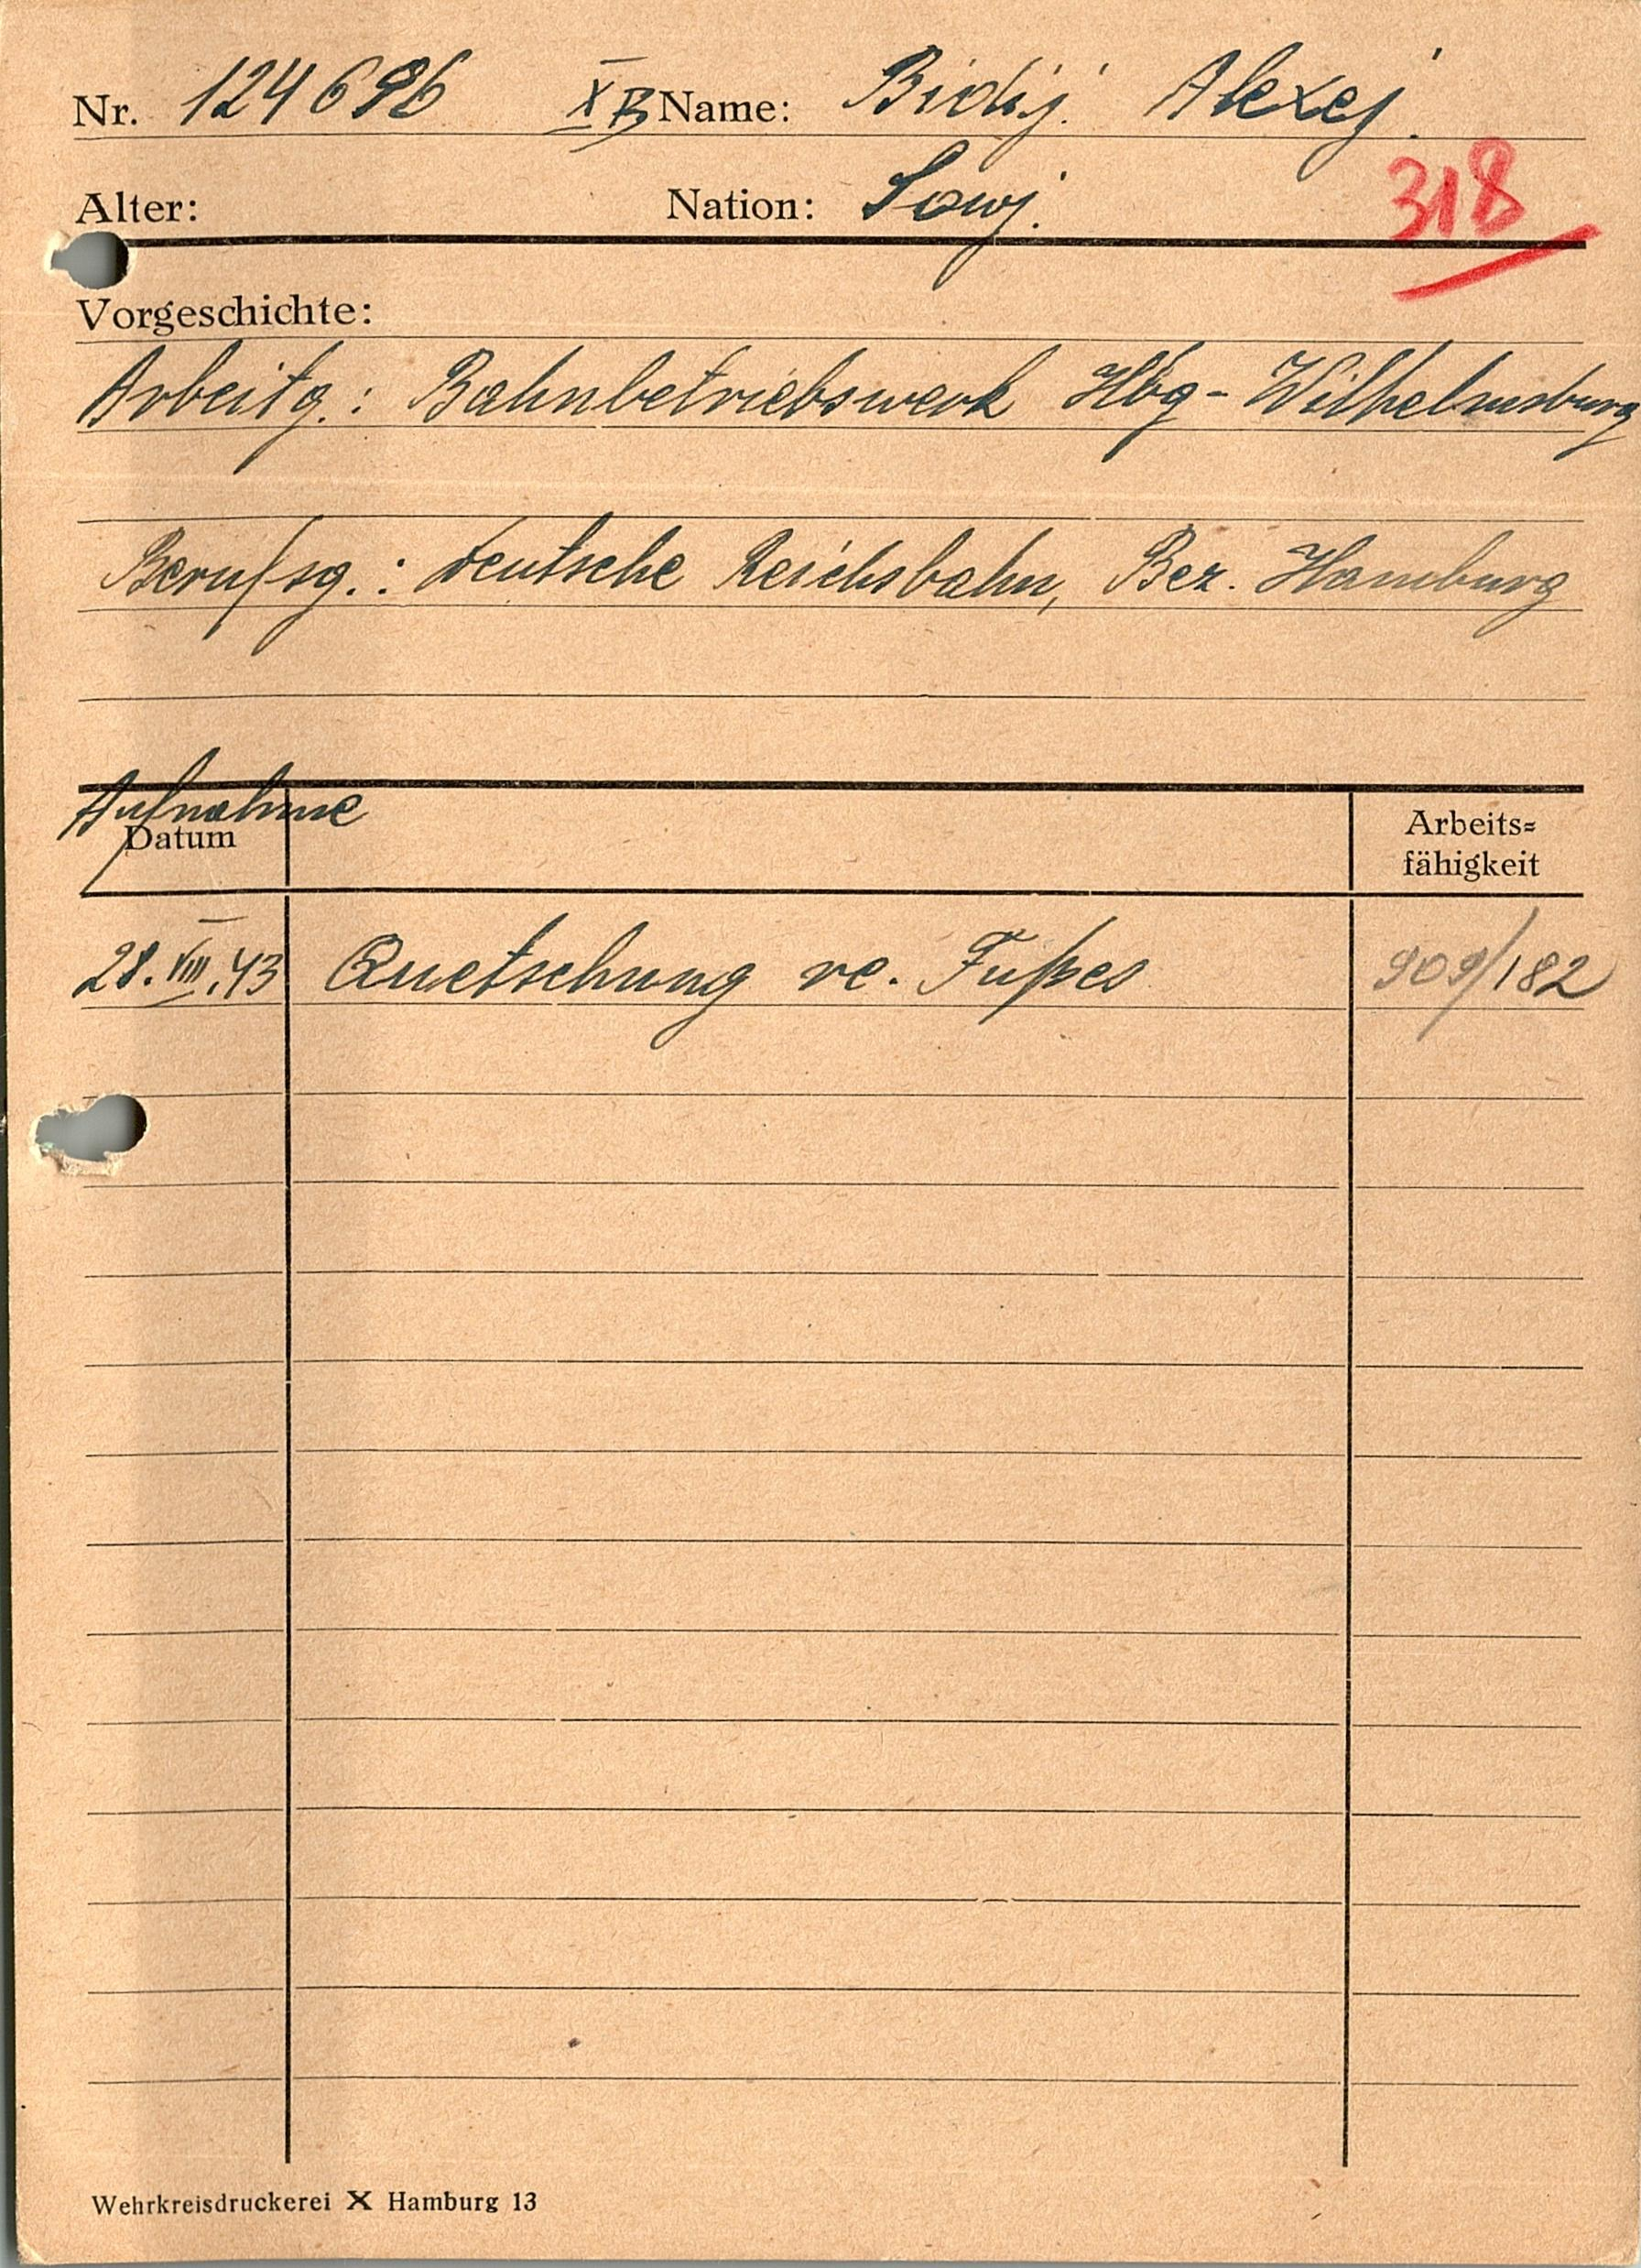 Nr. 124696 X B Name: Bidij. Alexej.
Alter: Nation: Sowj. 318
Vorgeschichte:
Arbeitg.: Bahnbetriebswerk Hbg-Wilhelmsburg
Berufsg.: deutsche Reichsbahn, Bez. Hamburg
Aufnahme
Datum Arbeits=
fähigkeit
28.VIII.43 Quetschung re. Fußes 909/182
Wehrkreisdruckerei X Hamburg 13